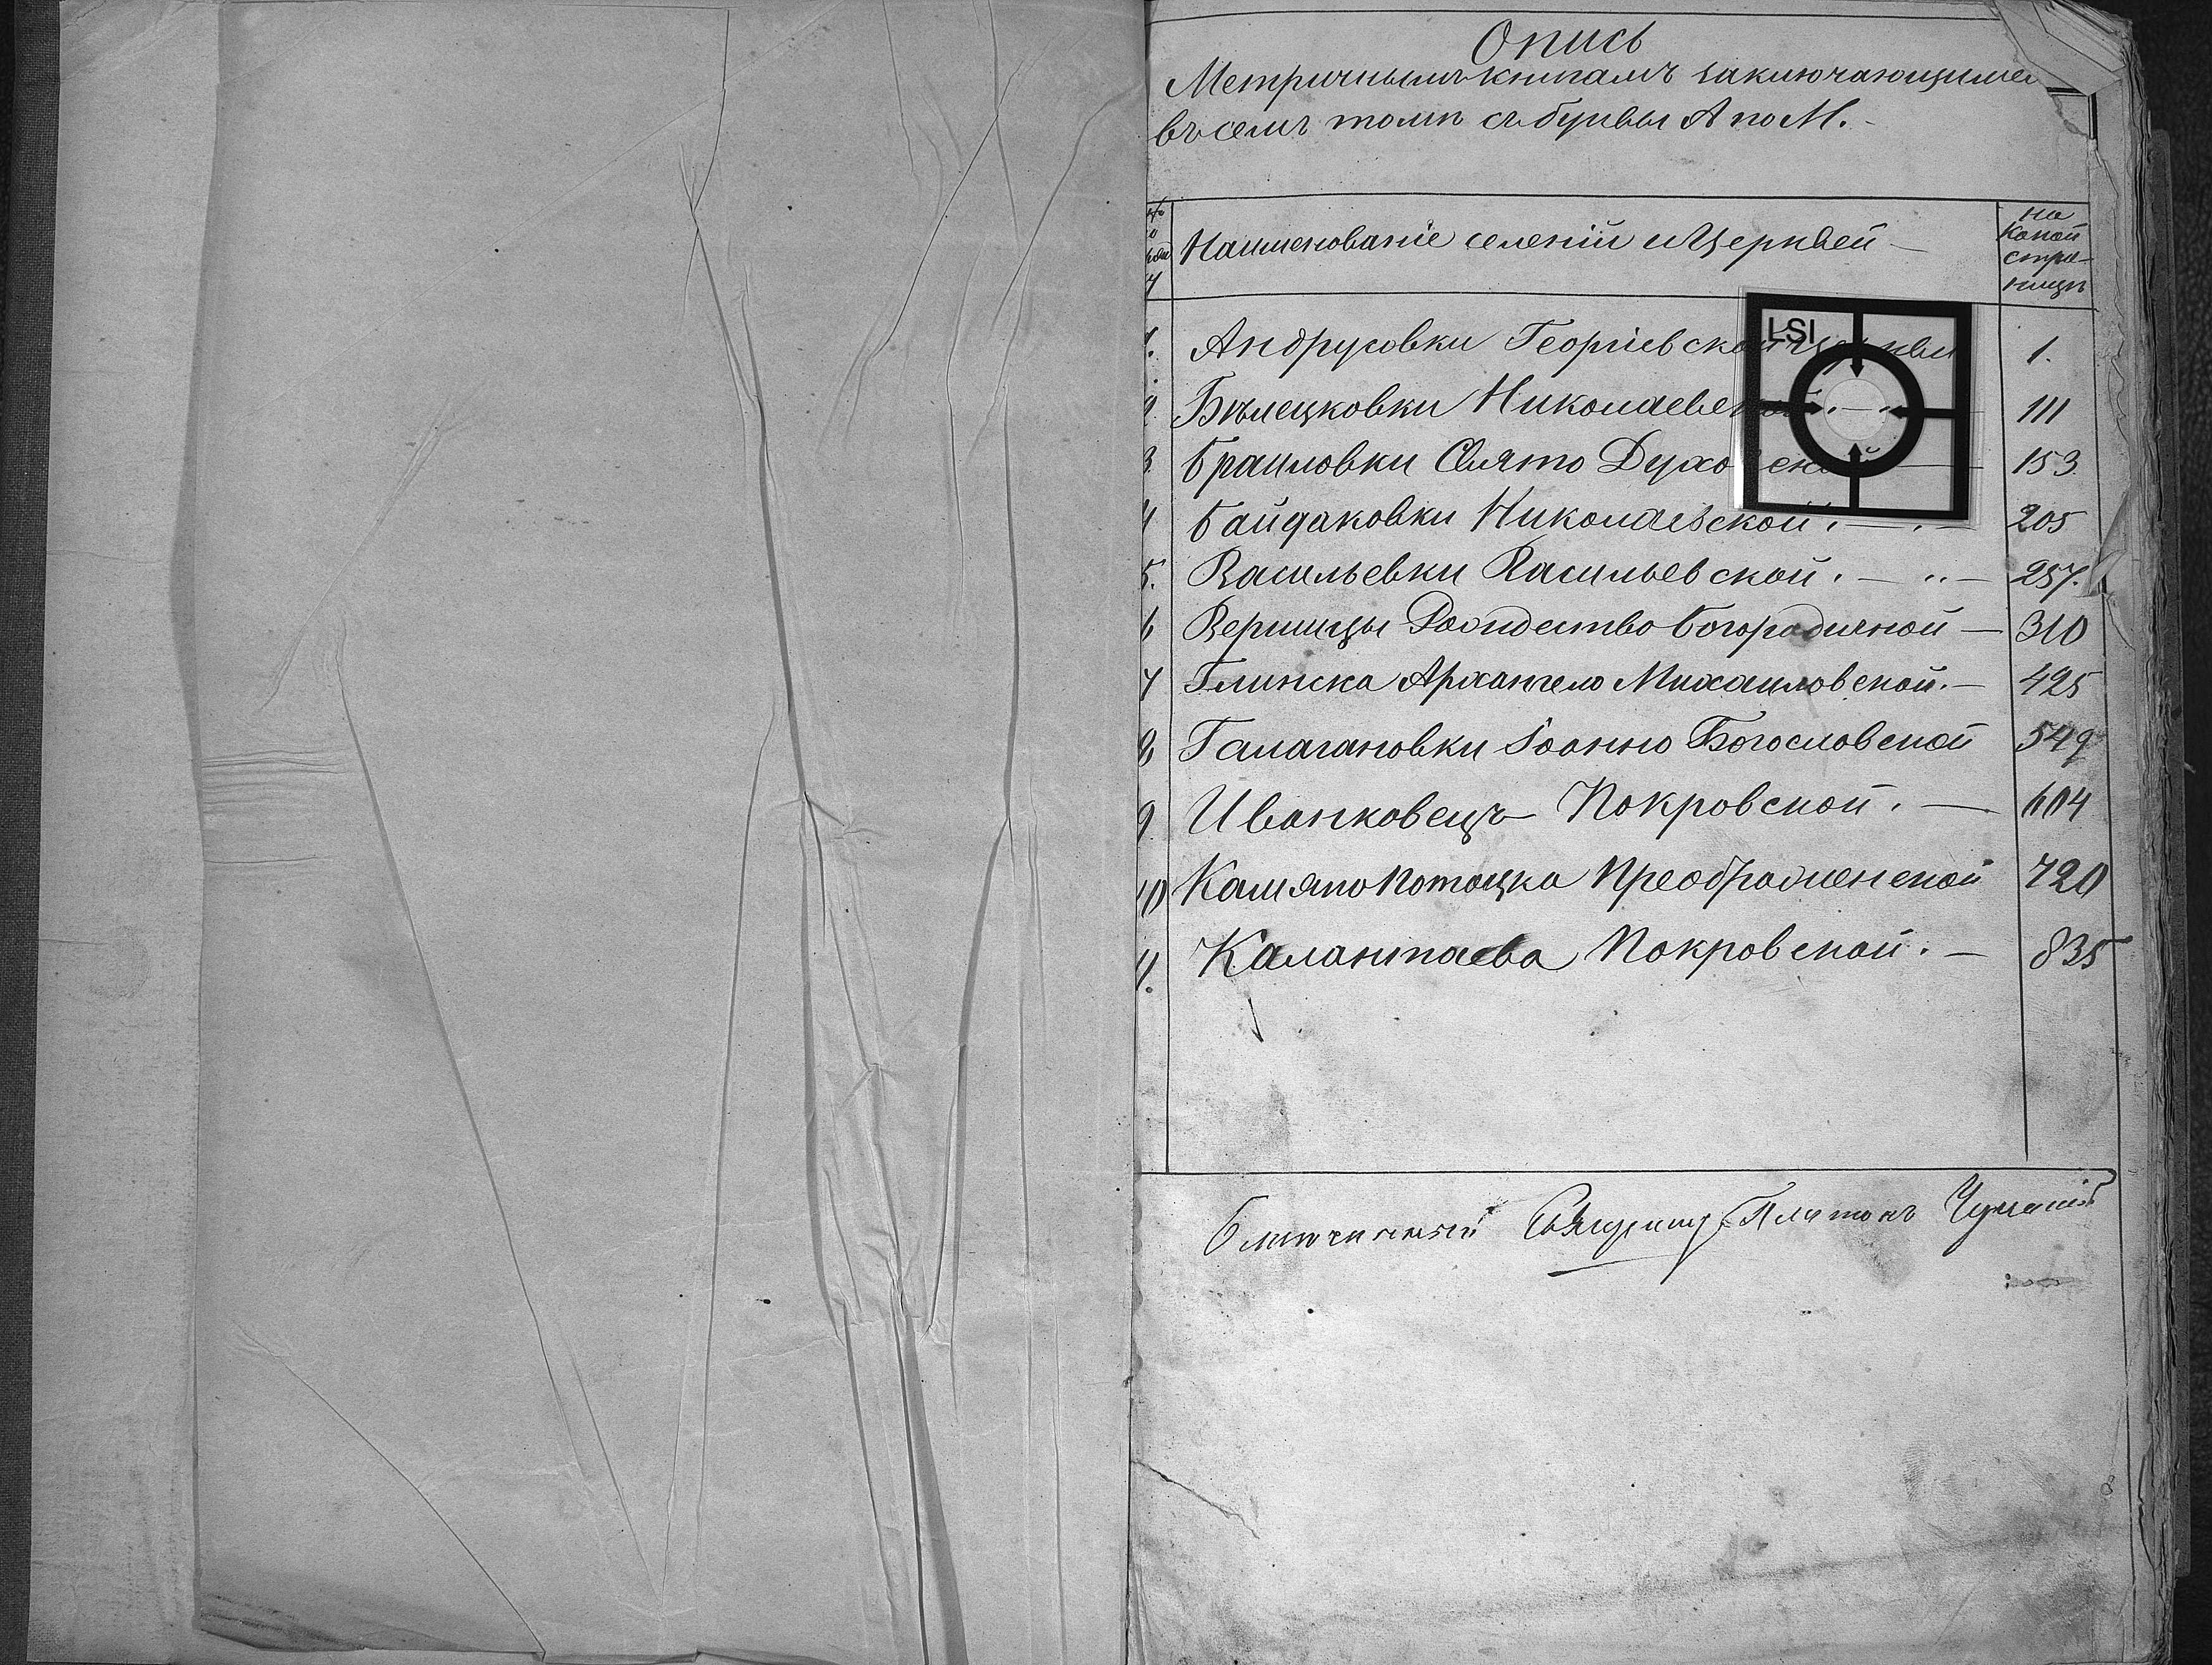 Опись
Метричнымъ книгамъ заключающимся
въ семъ томѣ съ буквы А по М.
Наименованіе селеній и Церквей
на
какой
стра-
ницѣ
LSI
1. Андрусовки Георгіевской церкви 1.
2. Бѣлецковки Николаевской 111
3. Браиловки Свято Духовской 153
4 Байдаковки Николаевской 205
5. Васильевки Васильевской 257.
6 Вершицы Рождество Богородичной 310
7 Глинска Архангело Михаиловской 425
8 Галагановки Іоанно Богословской 549
9 Иванковецъ Покровской 604
10 Камяно Потоцка Преображенской 720
11. Калантаева Покровской 835
Благочинный Священникъ Платонъ